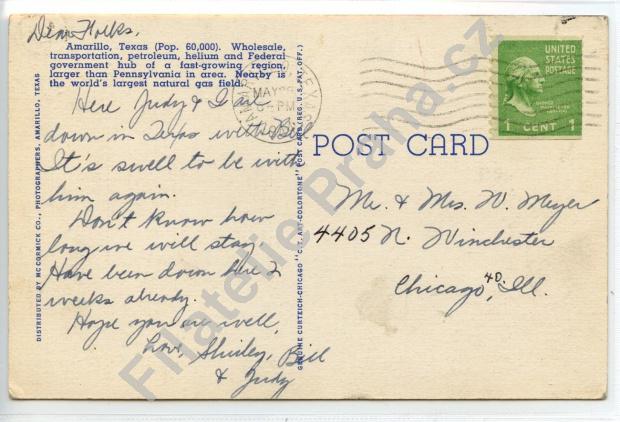 Dear Folks,
Amarillo, Texas (Pop. 60,000). Wholesale,
transportation, petroleum, helium and Federal
government hub of a fast-growing region,
larger than Pennsylvania in area. Nearby is
the world's largest natural gas field.
Here Judy & I are
down in Texas with Bill
It's swell to be with
him again.
Don't know how
long we will stay
Have been down here 2
weeks already.
Hope you are well,
Love, Shirley, Bill
& Judy
DISTRIBUTED BY MCCORMICK CO., PHOTOGRAPHERS, AMARILLO, TEXAS
GENUINE CURTEICH-CHICAGO "C.T. ART-COLORTONE" POST CARD (REG. U.S. PAT. OFF.)
MAY
PM
UNITED
STATES
POSTAGE
1 CENT 1
POST CARD
Mr. & Mrs. W. Meyer
4405 N. Winchester
Chicago, 40, Ill.
Filatelie Praha.cz